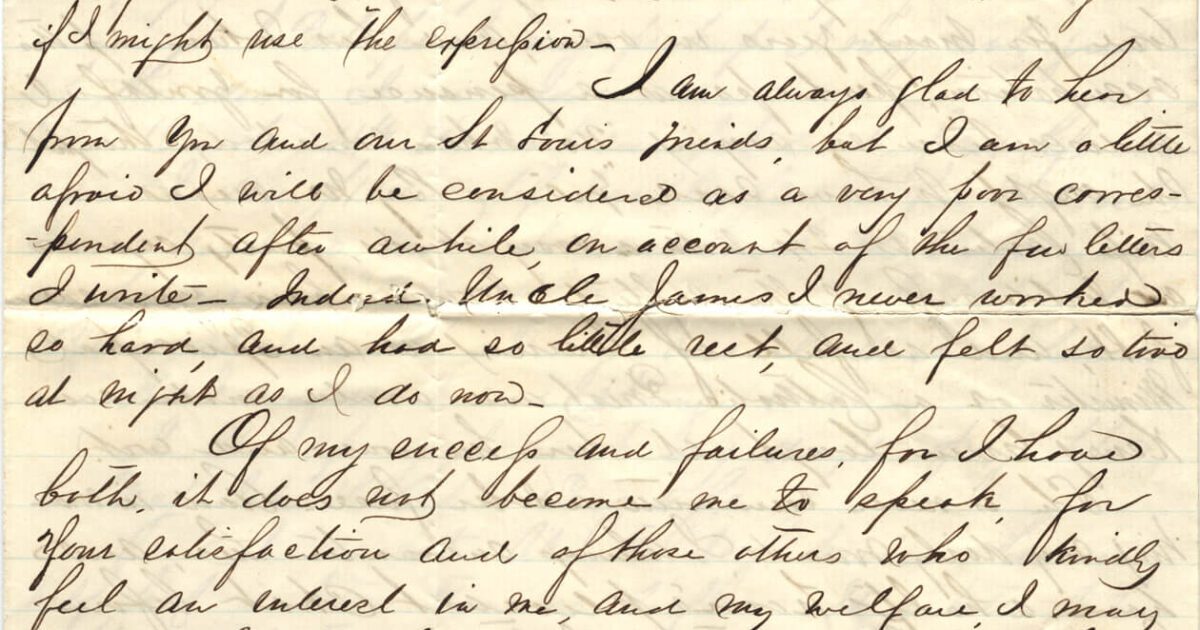 if I might use the expression—
I am always glad to hear
from you and our St Louis friends, but I am a little
afraid I will be considered as a very poor corres-
-pondent after awhile, on account of the few letters
I write— Indeed, Uncle James I never worked
so hard, and had so little rest, and felt so tired
at night as I do now—
Of my success and failures, for I have
both, it does not become me to speak, for
your satisfaction and of those others who kindly
feel an interest in me, and my welfare, I may